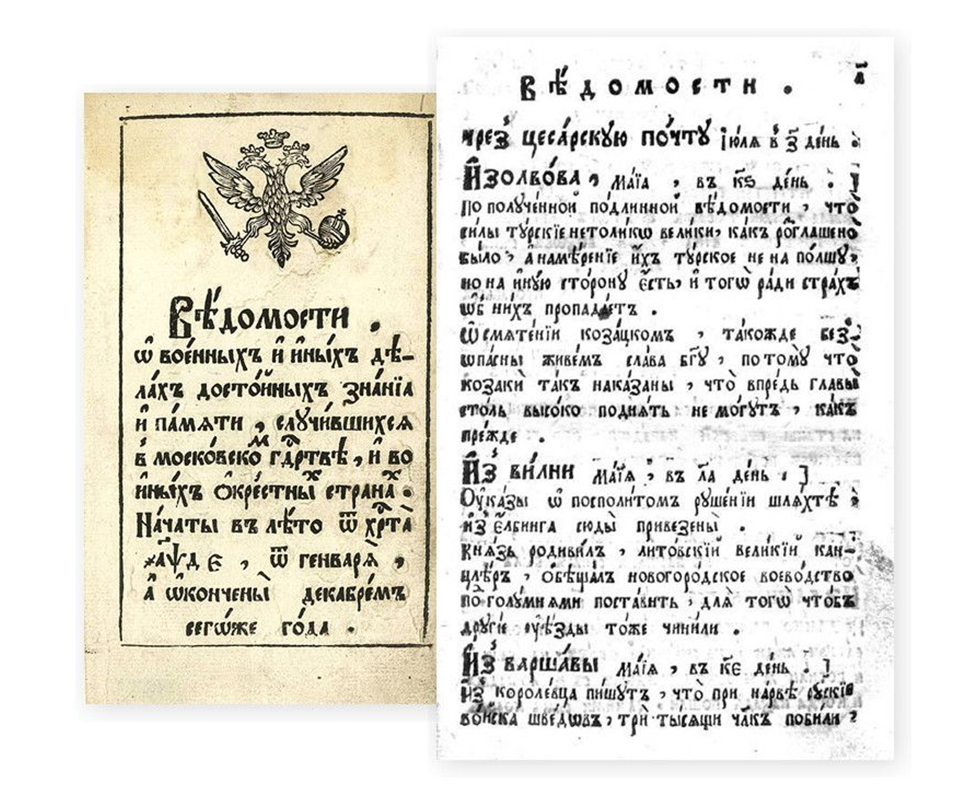 Вѣ́домости .
ѡ҆ вое́нныхъ и҆ и҆ны́хъ дѣ́-
ла́хъ досто́йныхъ зна́нїѧ
и҆ па́мѧти , случи́вшихсѧ
в моско́вско гдⷭ҇ртвѣ , и҆ во
и҆ны́хъ о҆кре́стныⷯ страна́ⷯ .
На́чаты въ лѣ́то ѿ хрⷭ҇та̀
҂аѱ҃д є , ѿ генварѧ̀ ,
а҆ ѡ҆кон́чены̀ декабре́мъ
сегѡ́же го́да .
Вѣ́домости .
чрез̾ цеса́рскую по́чту і҆ю́лѧ в҃ з҃ де́нь
И҆зольво́ва , Ма́їа , въ к҃ѕ де́нь .
По полу́ченной по́длинной вѣ́домости , что
силы ту́рскїе нетоликѡ велики , ка́къ ро́глашено
бы́ло , а҆ намѣ́ренїе и҆́хъ ту́рское не на по́лшу ,
но на и҆ну́ю сторону̀ є҆́сть , и҆ тогѡ̀ ра́ди стра́хъ
ѡб ни́хъ пропада́етъ .
Ѡ҆ смѧте́нїи коза́цкомъ , та́кожде без̾-
ѡпа́сны живе́мъ сла́ва бг҃у , по тому̀ что
козакѝ та́къ наказаны , что̀ впре́дь главы̀
столь высо́ко поднѧ́ть не мо́гутъ , ка́къ
пре́жде .
И҆з̾ ви́лни Маїѧ , въ л҃а де́нь .
Оу҆ка́зы ѡ҆ посполи́томъ руше́нїи шлѧ́хтѣ ,
и҆з̾ є҆́лбинга сюды̀ привезены̀ .
Кнѧ́зь родиви́лъ , лито́вскїй вели́кїй кан-
цле́ръ , ѻ҆бѣща́лъ новогоро́дское воево́дство
по голумнѧми поста́вить , длѧ̀ тогѡ̀ что́бъ
други́е оуѣ́зды то́же чини́ли .
И҆з̾ варша́вы Маїѧ , въ к҃є де́нь .
И҆з̾ короле́вца пи́шутъ , что̀ при на́рвѣ ру́скїе
во́йска шве́дѡвъ , трѝ ты́сѧщи чл҃къ поби́ли ,